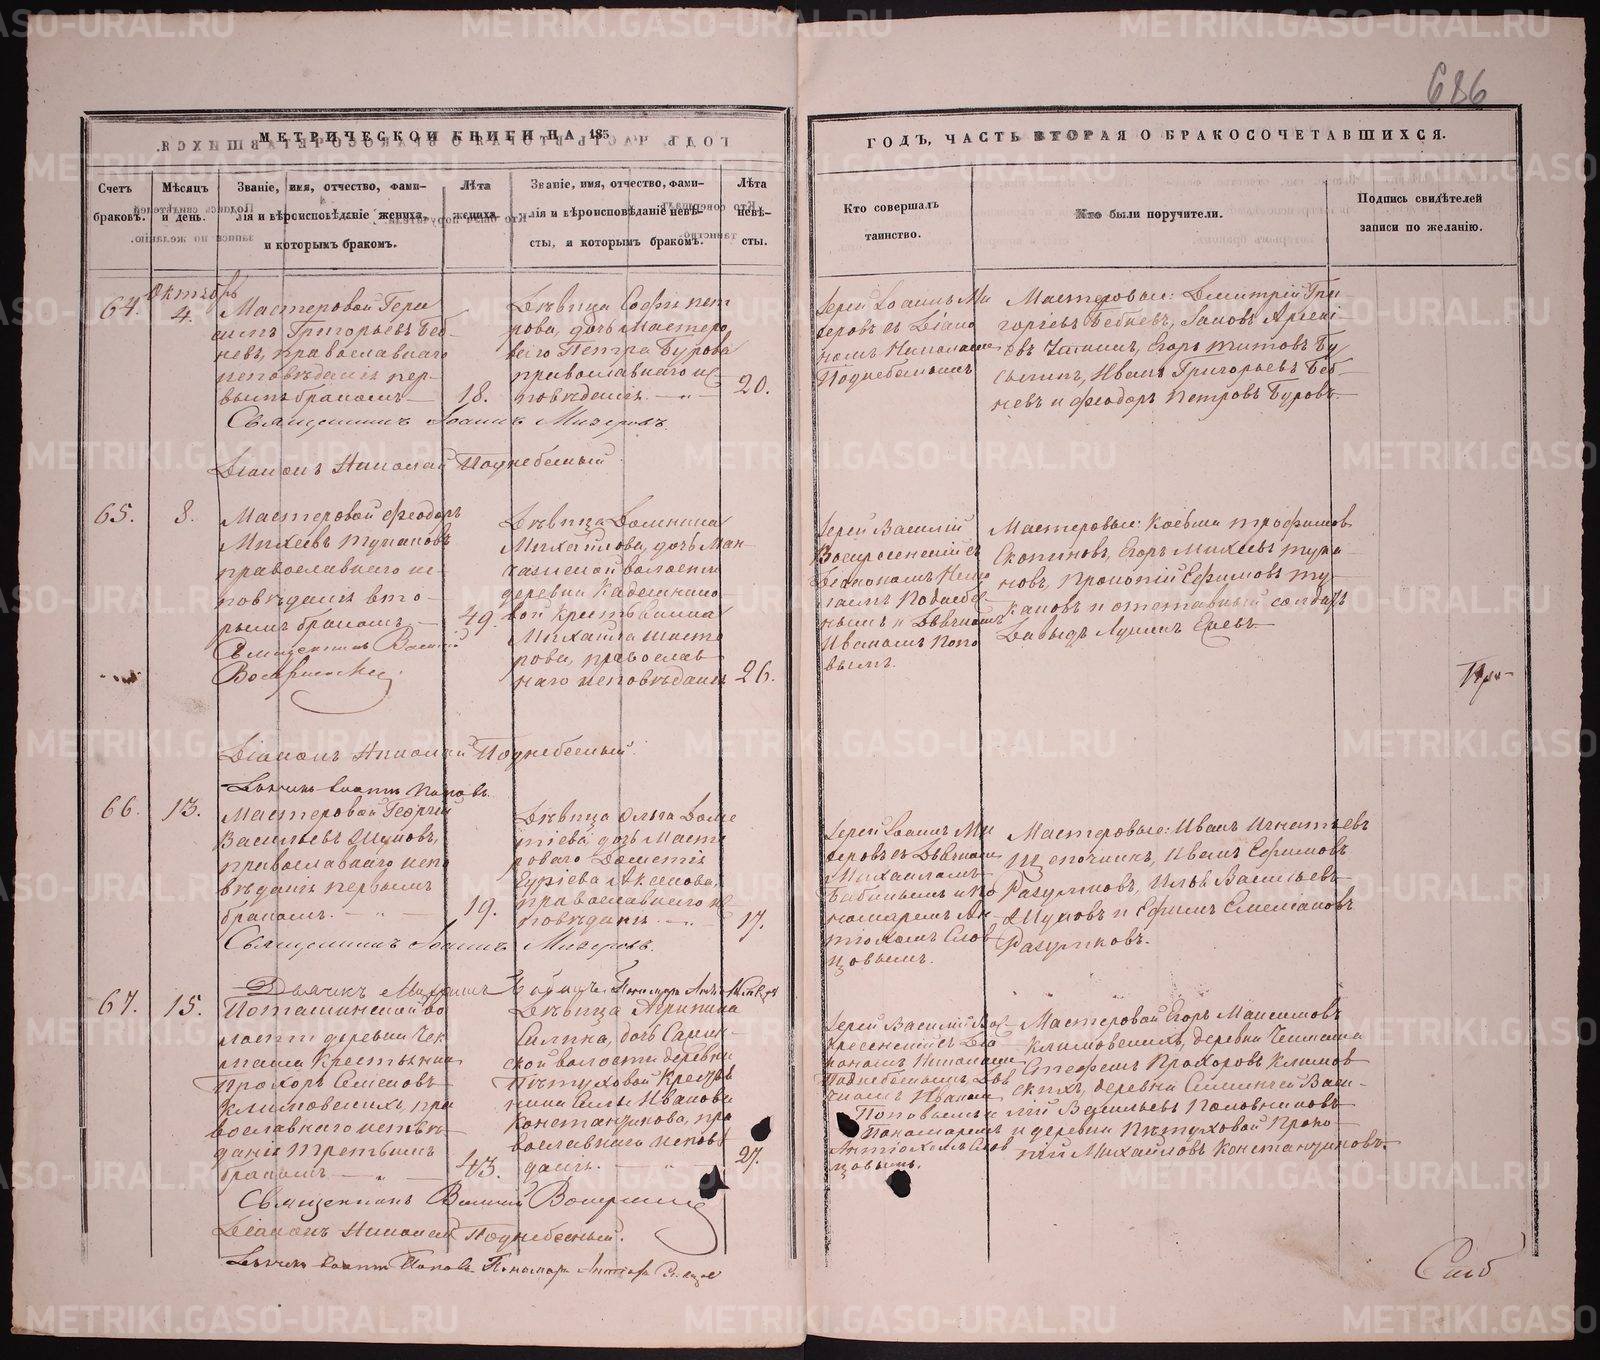 686
МЕТРИЧЕСКОЙ КНИГИ НА 185
ГОДЪ, ЧАСТЬ ВТОРАЯ О БРАКОСОЧЕТАВШИХСЯ.
Счетъ браковъ.
Мѣсяцъ и день.
Званіе, имя, отчество, фами-
лія и вѣроисповѣданіе жениха,
и которымъ бракомъ.
Лѣта
жениха.
Званіе, имя, отчество, фами-
лія и вѣроисповѣданіе невѣ-
сты, и которымъ бракомъ.
Лѣта
невѣ-
сты.
Кто совершалъ
таинство.
Кто были поручители.
Подпись свидѣтелей
записи по желанію.
64.
Октябрь
4.
Мастеровой Гера
симъ Григорьевъ Беб-
невъ, православнаго
исповѣданія пер-
вымъ бракомъ
18.
Дѣвица Софія Пет
рова, дочь мастеро
ваго Петра Бурова
православнаго ис
повѣданія.
20.
Іерей Іоаннъ Ми
зеровъ съ Діако
номъ Николаемъ
Поднебеснымъ
Мастеровые: Димитрій Гри
горьевъ Бебневъ, Іаковъ Арсені
евъ, Егоръ Титовъ Бу
Иванъ Григорьевъ Беб-
невъ и Феодоръ Петровъ Буровъ.
Священникъ Іоаннъ Мизеровъ.
Діаконъ Николай Поднебесный.
65.
8.
Мастеровой Феодоръ
Михеевъ Тукановъ
православнаго ис-
повѣданія вто-
рымъ бракомъ
49.
Дѣвица Домникія
Михайлова, дочь Ман-
чажской волости
деревни
вой крестьянина
Михаила Шесте
рова, православ
наго исповѣданія
26.
Іерей Василій
Воскресенскій съ
Діакономъ Нико
лаемъ Поднебес
нымъ и Дьячкомъ
Иваномъ Попо
вымъ.
Мастеровые: Трофимовъ
Скопиновъ, Егоръ Михеевъ Тука
новъ, Прокопій Ефимовъ Ту-
кановъ и отставный солдатъ
Давыдъ
Священникъ Василій
Воскресенскій.
При-
Діаконъ Николай Поднебесный.
Дьячикъ Іоаннъ Поповъ.
66.
13.
Мастеровой Георгій
Васильевъ Шуковъ,
православнаго испо
вѣданія первымъ
бракомъ.
19.
Дѣвица Ольга Доме
тіева, дочь масте
роваго Дометія
Аксенова,
православнаго ис
повѣданія.
17.
Іерей Іоаннъ Ми
зеровъ съ Дьячкомъ
Михаиломъ
Бабинымъ и По
номаремъ Ан-
тіохомъ Слов
цовымъ.
Мастеровые: Иванъ Игнатьевъ
Щепочкинъ, Иванъ Ефимовъ
Разумковъ, Илья Васильевъ
Шуковъ и Ефимъ Емельяновъ
Разумковъ.
Священникъ Іоаннъ Мизеровъ.
67.
15.
Поташинской во
лости деревни Чек
маша крестьянинъ
Прохоръ Семеновъ
Климовскихъ, пра
вославнаго исповѣ
данія третьимъ
бракомъ
43.
Дѣвица Агрипина
Силина, дочь Сарин-
ской волости деревни
Пѣтуховой крестья
нина Силы Иванова
Константинова, пра
вославнаго исповѣ
данія.
27.
Іерей Василій Вос
кресенскій съ Діа
кономъ Николаемъ
Поднебеснымъ, Дья
чкомъ Иваномъ
Поповымъ и
Пономаремъ
Антіохомъ Слов
цовымъ.
Мастеровой Егоръ Максимовъ
Климовскихъ, деревни Чекмаша
Стефанъ Прохоровъ Климов
скихъ, деревни Васи-
лій Васильевъ Половниковъ
и деревни Пѣтуховой Проко-
пій Михайловъ Константиновъ.
Священникъ Василій Воскресенскій
Діаконъ Николай Поднебесный.
Дьячикъ Іоаннъ Поповъ Пономарь Антіохъ Словцовъ